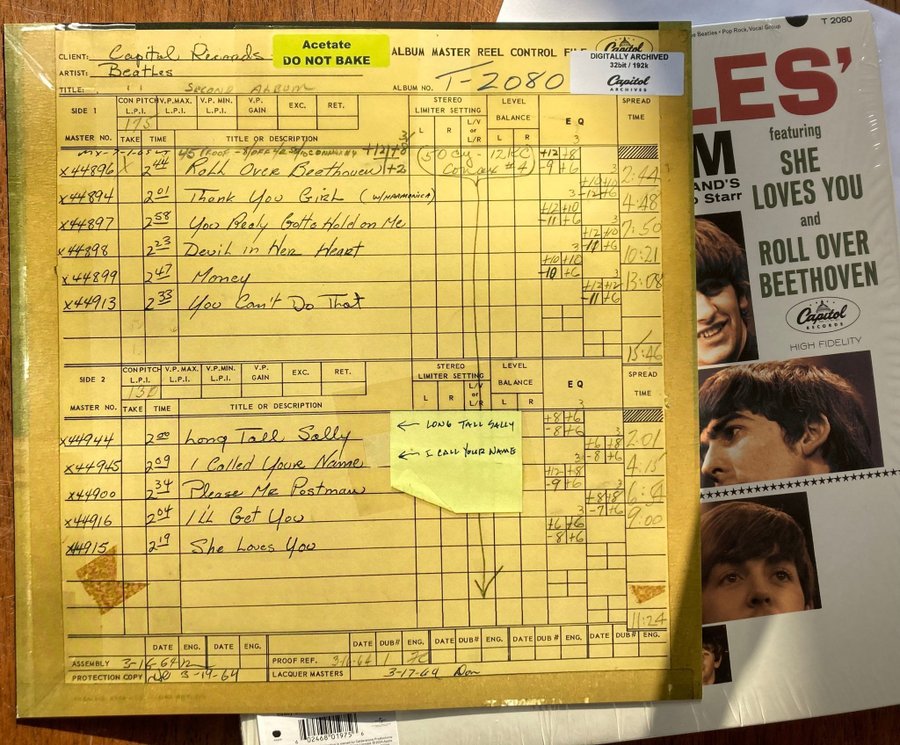 CLIENT: Capitol Records
Acetate
DO NOT BAKE
ALBUM MASTER REEL CONTROL FILE
Capitol
ARTIST: Beatles
DIGITALLY ARCHIVED
32bit / 192k
Capitol
ARCHIVES
TITLE: " SECOND ALBUM
ALBUM NO. T-2080
SIDE 1
CON PITCH L.P.I. V.P. MAX. L.P.I. V.P. MIN. L.P.I. V.P. GAIN EXC. RET.
STEREO LIMITER SETTING L R L/V or L/R
LEVEL BALANCE L R
EQ
SPREAD TIME
175
MASTER NO. TAKE TIME TITLE OR DESCRIPTION
X44896 X 2 44 Roll Over Beethoven +2 -9 +6 2:44
X44894 2 01 Thank You Girl (w/HARMONICA) 4:48
X44897 2 58 You Realy Gotta Hold on Me 7:50
X44898 2 23 Devil in Her Heart 10:21
X44899 2 47 Money 13:08
X44913 2 33 You Can't Do That
15:46
SIDE 2
CON PITCH L.P.I. V.P. MAX. L.P.I. V.P. MIN. L.P.I. V.P. GAIN EXC. RET.
STEREO LIMITER SETTING L R L/V or L/R
LEVEL BALANCE L R
EQ
SPREAD TIME
130
MASTER NO. TAKE TIME TITLE OR DESCRIPTION
X44944 2 00 Long Tall Sally ← LONG TALL SALLY 2:01
X44945 2 09 I Called Your Name ← I CALL YOUR NAME 4:15
X44900 2 34 Please Mr Postman
X44916 2 04 I'll Get You 9:00
X44915 2 19 She Loves You
11:24
DATE ENG. DATE ENG. DATE DUB# ENG. DATE DUB# ENG. DATE DUB# ENG. DATE DUB# ENG.
ASSEMBLY 3-16-64 PROOF REF. 3-16-64 1
PROTECTION COPY 3-19-64 LACQUER MASTERS 3-17-64 Don
The Beatles • Pop Rock, Vocal Group
T 2080
LES'
featuring
SHE
LOVES YOU
and
ROLL OVER
BEETHOVEN
M
AND'S
Starr
Capitol
RECORDS
HIGH FIDELITY
6 02468 01975 6